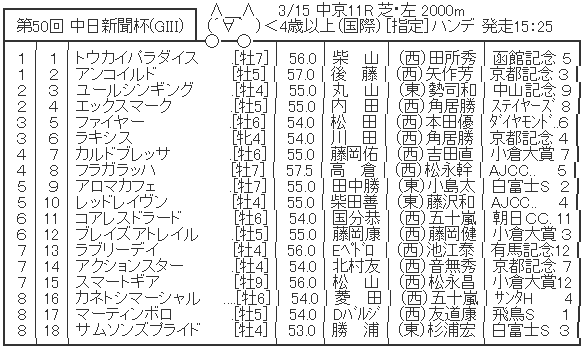 第50回 中日新聞杯(GIII) 3/15 中京11R 芝・左 2000m
<4歳以上(国際) [指定] ハンデ 発走15:25
1 1 トウカイパラダイス .[牡7] 56.0 柴 山 (西)田所秀 函館記念 5
1 2 アンコイルド [牡5] 57.0 後 藤 (西)矢作芳 京都記念 3
2 3 ユールシンギング [牡4] 55.0 丸 山 (東)勢司和 中山記念 9
2 4 エックスマーク [牡5] 55.0 内 田 (西)角居勝 ステイヤーズ 8
3 5 ファイヤー [牡6] 54.0 松 田 (西)本田優 ダイヤモンド.. 6
3 6 ラキシス [牝4] 54.0 川 田 (西)角居勝 京都記念 4
4 7 カルドブレッサ [牡6] 55.0 藤岡佑 (西)吉田直 小倉大賞 7
4 8 フラガラッハ [牡7] 57.5 高 倉 (西)松永幹 AJCC.. 5
5 9 アロマカフェ [牡7] 55.0 田中勝 (東)小島太 白富士S 2
5 10 レッドレイヴン [牡4] 55.0 柴田善 (東)藤沢和 AJCC.. 4
6 11 コアレスドラード [牡6] 54.0 国分恭 (西)五十嵐 朝日CC. 11
6 12 ブレイズアトレイル [牡5] 55.0 藤岡康 (西)藤岡健 小倉大賞 3
7 13 ラブリーデイ [牡4] 56.0 Eペドロ (西)池江泰 有馬記念12
7 14 アクションスター [牡4] 54.0 北村友 (西)音無秀 京都記念 7
7 15 スマートギア [牡9] 56.0 松 山 (西)松永昌 小倉大賞12
8 16 カネトシマーシャル ....[牡6] 54.0 菱 田 (西)五十嵐 サンタH 4
8 17 マーティンボロ [牡5] 54.0 Dバルジ (西)友道康 飛鳥S 1
8 18 サムソンズプライド [牡4] 53.0 勝 浦 (東)杉浦宏 白富士S 3